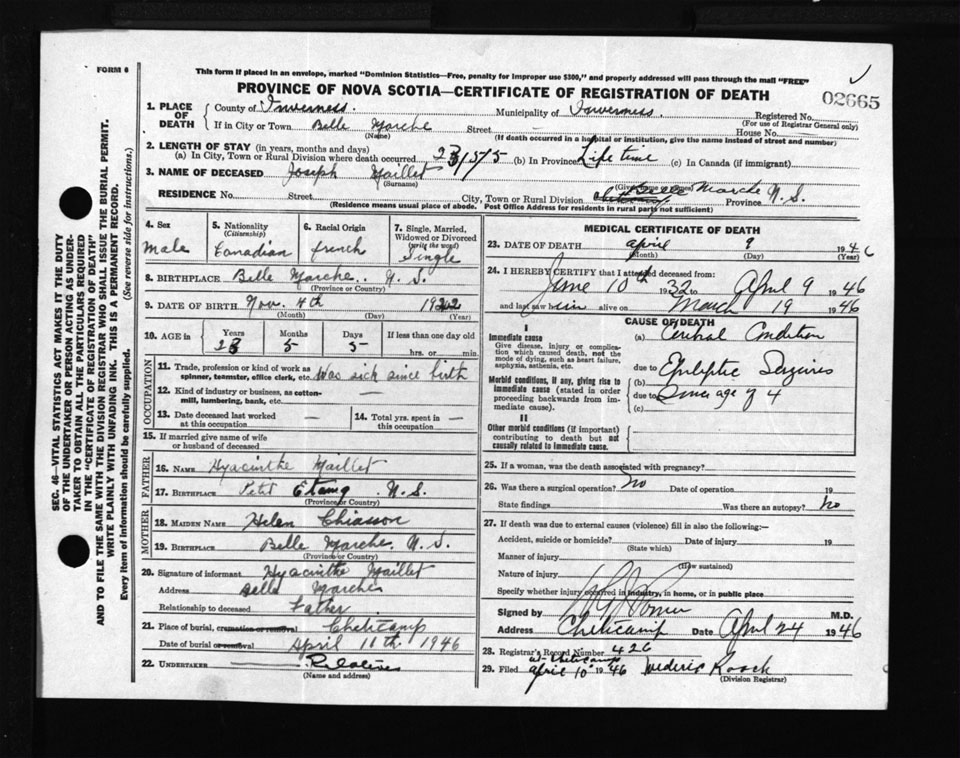 FORM 6
This form if placed in an envelope, marked "Dominion Statistics—Free, penalty for improper use $300," and properly addressed will pass through the mail "FREE"
PROVINCE OF NOVA SCOTIA—CERTIFICATE OF REGISTRATION OF DEATH
02665
1. PLACE OF DEATH
County of Inverness. Municipality of Inverness. Registered No.
(For use of Registrar General only)
If in City or Town Belle Marche Street — House No.
(Name) (If death occurred in a hospital or institution, give the name instead of street and number)
2. LENGTH OF STAY (in years, months and days)
(a) In City, Town or Rural Division where death occurred 23/5/5 (b) In Province Life time (c) In Canada (if immigrant)
3. NAME OF DECEASED Joseph Maillet
(Surname) (Given
RESIDENCE No. Street City, Town or Rural Division Belle Marche Province N.S.
(Residence means usual place of abode. Post Office Address for residents in rural parts not sufficient)
4. Sex
Male
5. Nationality
(Citizenship)
Canadian
6. Racial Origin
french
7. Single, Married, Widowed or Divorced
(write the word)
Single
8. BIRTHPLACE Belle Marche. N.S.
(Province or Country)
9. DATE OF BIRTH Nov. 4th 1922
(Month) (Day) (Year)
10. AGE in
Years 23
Months 5
Days 5
If less than one day old
hrs. or min.
OCCUPATION
11. Trade, profession or kind of work as spinner, teamster, office clerk, etc. was sick since birth
12. Kind of industry or business, as cotton-mill, lumbering, bank, etc. —
13. Date deceased last worked at this occupation —
14. Total yrs. spent in this occupation —
15. If married give name of wife or husband of deceased
FATHER
16. NAME Hyacinthe Maillet
17. BIRTHPLACE Petit Etang N.S.
(Province or Country)
MOTHER
18. MAIDEN NAME Helen Chiasson
19. BIRTHPLACE Belle Marche. N.S.
(Province or Country)
20. Signature of informant Hyacinthe Maillet
Address Belle Marche
Relationship to deceased Father
21. Place of burial, cremation or removal Cheticamp
Date of burial or removal April 11th. 1946
22. UNDERTAKER Relatives
(Name and address)
MEDICAL CERTIFICATE OF DEATH
23. DATE OF DEATH April 9 1946
(Month) (Day) (Year)
24. I HEREBY CERTIFY that I attended deceased from:
June 10th 1932 to April 9 1946
and last saw him alive on March 19 1946
CAUSE OF DEATH
I
Immediate cause
Give disease, injury or complication which caused death, not the mode of dying, such as heart failure, asphyxia, asthenia, etc.
(a) Cerebral Condition
due to Epileptic Seizures
Morbid conditions, if any, giving rise to immediate cause (stated in order proceeding backwards from immediate cause).
(b)
due to Since age of 4
(c)
II
Other morbid conditions (if important) contributing to death but not causally related to immediate cause.
25. If a woman, was the death associated with pregnancy?
26. Was there a surgical operation? No Date of operation 19
State findings Was there an autopsy? No
27. If death was due to external causes (violence) fill in also the following:—
Accident, suicide or homicide? Date of injury 19
(State which)
Manner of injury
(How sustained)
Nature of injury
Specify whether injury occurred in industry, in home, or in public place
Signed by M.D.
Address Cheticamp Date April 24 1946
28. Registrar's Record Number 426
at Cheticamp
29. Filed April 10 1946 Frederic Roach
(Division Registrar)
SEC. 46—VITAL STATISTICS ACT MAKES IT THE DUTY
OF THE UNDERTAKER OR PERSON ACTING AS UNDER-
TAKER TO OBTAIN ALL THE PARTICULARS REQUIRED
IN THE "CERTIFICATE OF REGISTRATION OF DEATH"
AND TO FILE THE SAME WITH THE DIVISION REGISTRAR WHO SHALL ISSUE THE BURIAL PERMIT.
WRITE PLAINLY WITH UNFADING INK. THIS IS A PERMANENT RECORD.
Every item of information should be carefully supplied. (See reverse side for instructions.)